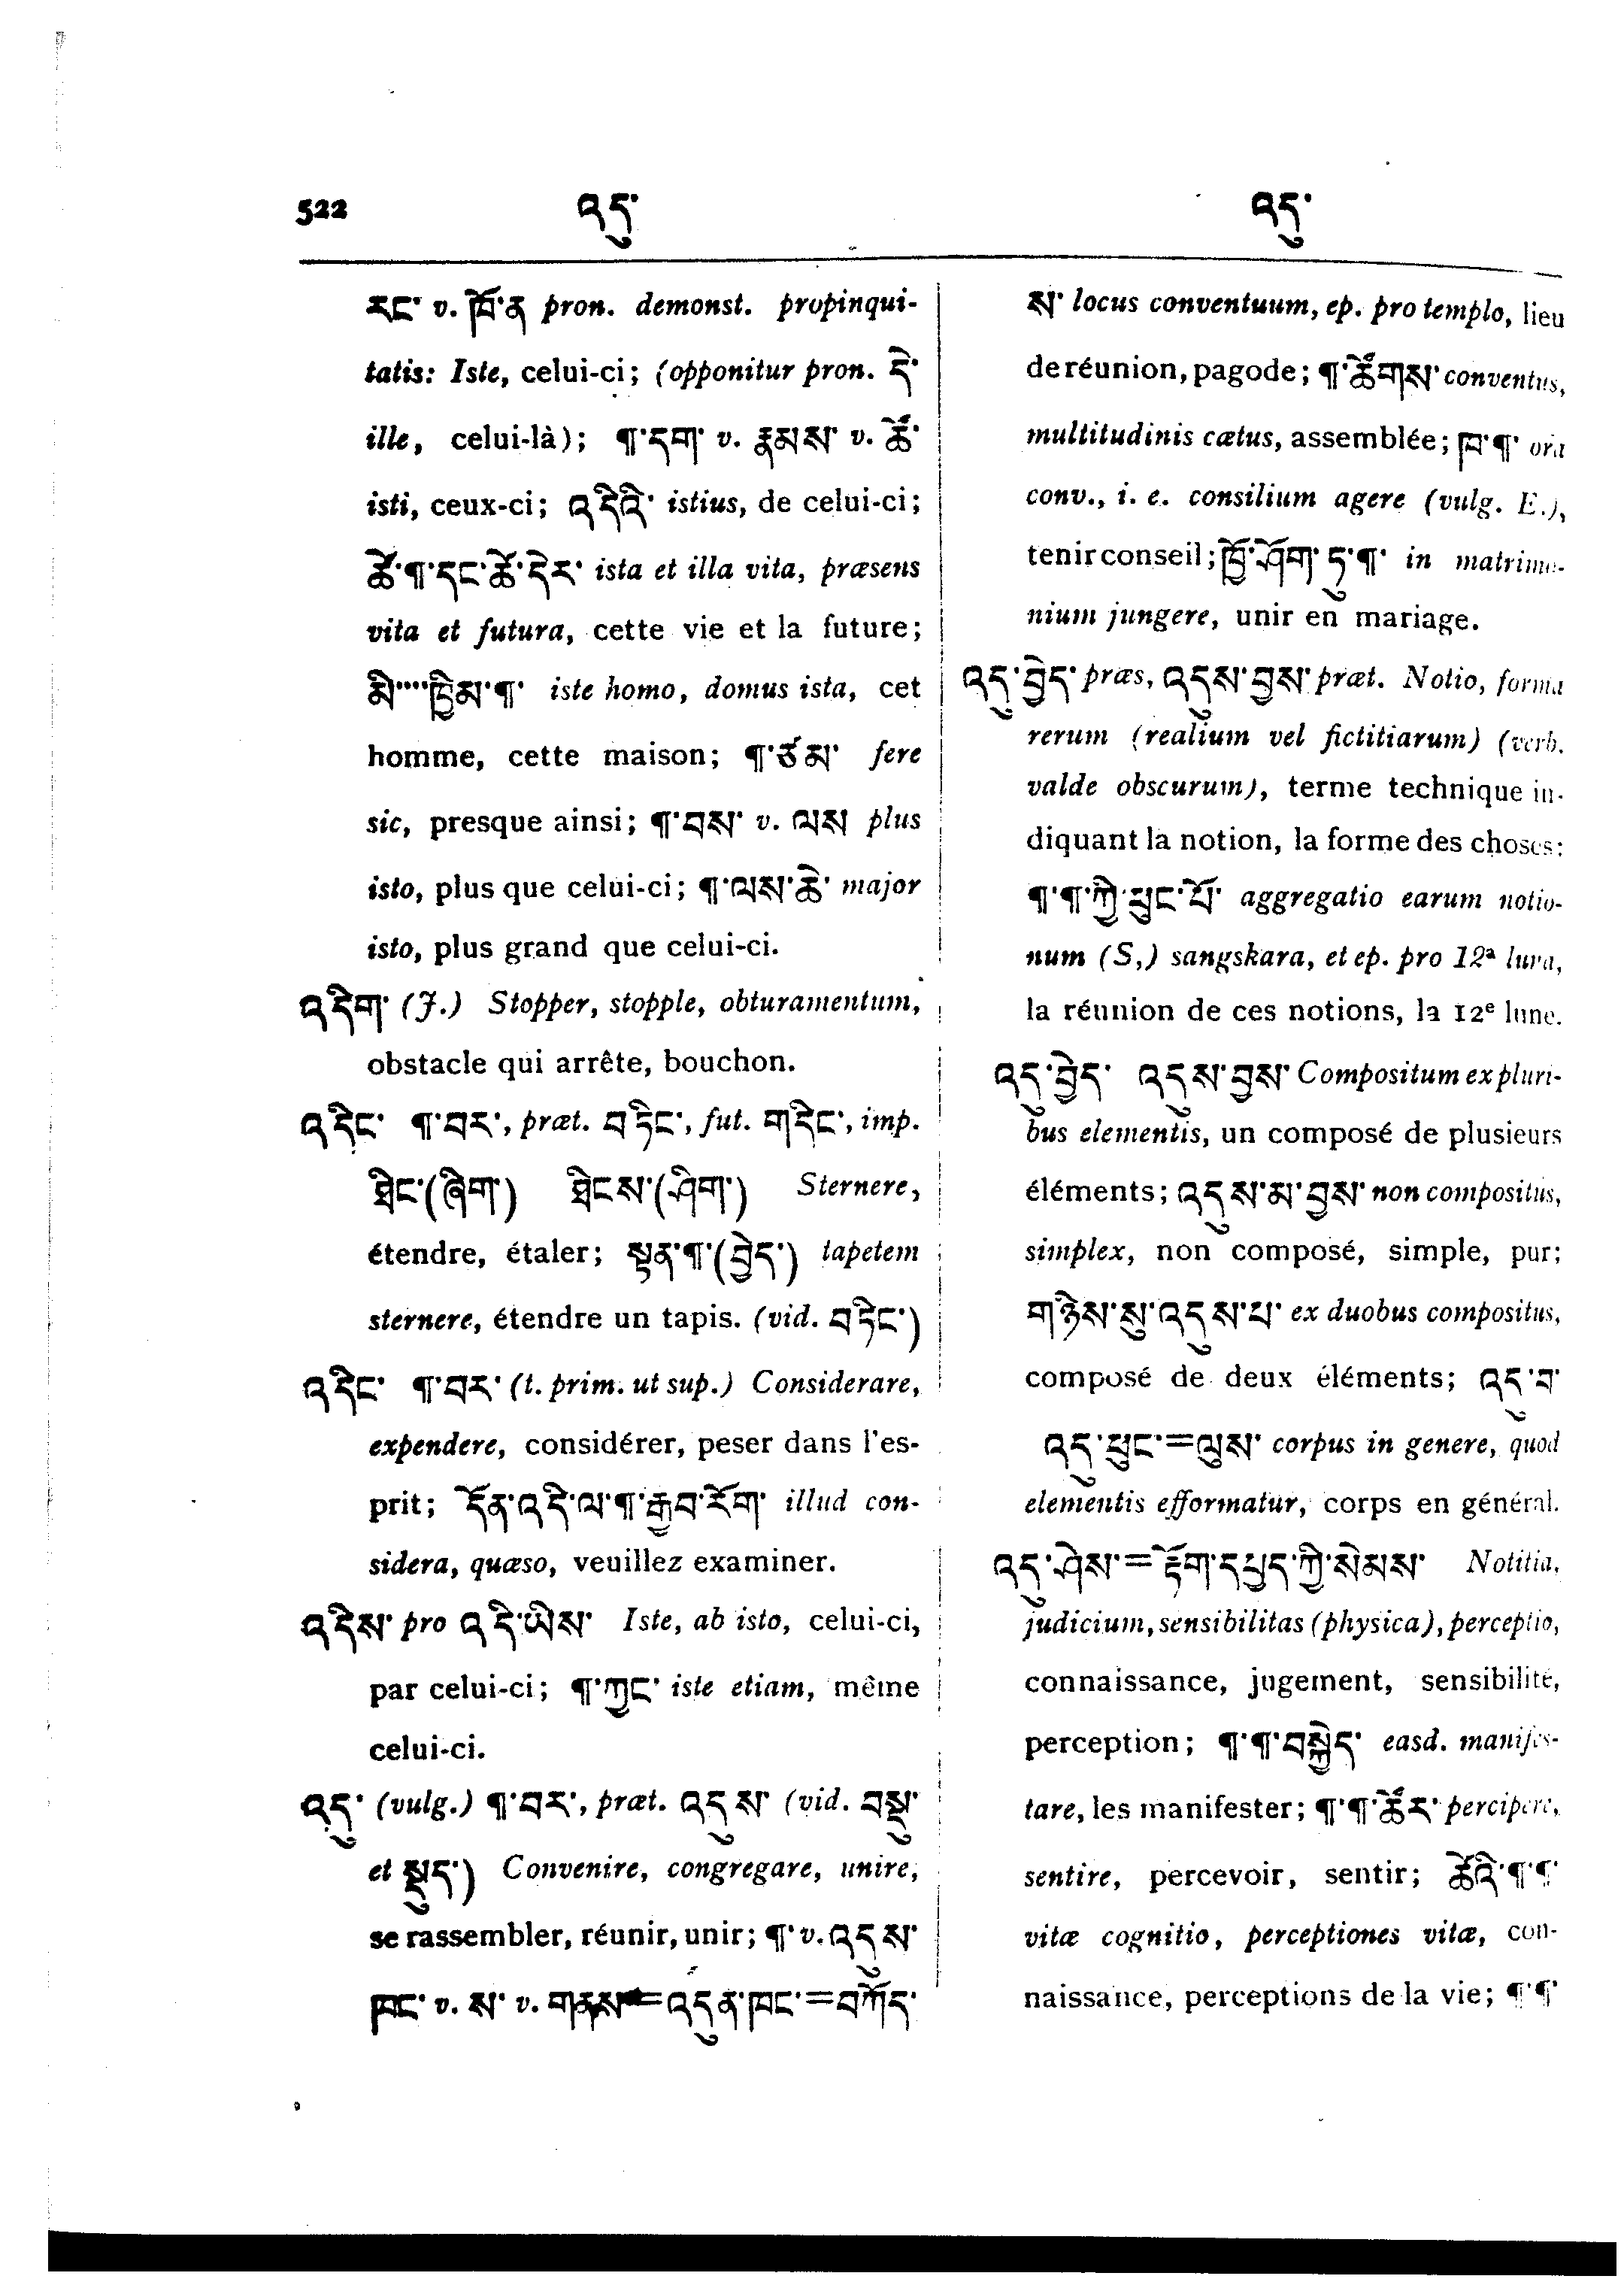 522 འདུ་ འདུ་
རང་ v. ཁོ་ན pron. demonst. propinqui-
tatis: Iste, celui-ci; (opponitur pron. དེ་
ille, celui-là); ¶་དག་ v. རྣམས་ v. ཚོ་
isti, ceux-ci; འདིའི་ istius, de celui-ci;
ཚེ་¶་དང་ཚེ་དེར་ ista et illa vita, præsens
vita et futura, cette vie et la future;
མི་···ཁྱིམ་¶་ iste homo, domus ista, cet
homme, cette maison; ¶་ཙམ་ fere
sic, presque ainsi; ¶་བས་ v. ལས plus
isto, plus que celui-ci; ¶་ལས་ཆེ་ major
isto, plus grand que celui-ci.
འདིག་ (J.) Stopper, stopple, obturamentum,
obstacle qui arrête, bouchon.
འདིང་ ¶་བར་, præt. བཏིང་, fut. གདིང་, imp.
ཐིང་(ཞིག་) ཐིངས་(ཤིག་) Sternere,
étendre, étaler; སྟན་¶་(བྱེད་) tapetem
sternere, étendre un tapis. (vid. བཏིང་)
འདིང་ ¶་བར་ (t. prim. ut sup.) Considerare,
expendere, considérer, peser dans l'es-
prit; དོན་འདི་ལ་¶་རྒྱབ་རོག་ illud con-
sidera, quæso, veuillez examiner.
འདིས་ pro འདི་ཡིས་ Iste, ab isto, celui-ci,
par celui-ci; ¶་ཀྱང་ iste etiam, même
celui-ci.
འདུ་ (vulg.) ¶་བར་, præt. འདུས་ (vid. བསྡུ་
et སྡུད་) Convenire, congregare, unire,
se rassembler, réunir, unir; ¶་ v. འདུས་
ཁང་ v. ས་ v. གནས་=འདུན་ཁང་=བཀོད་
ས་ locus conventuum, ep. pro templo, lieu
de réunion, pagode; ¶་ཚོགས་ conventus,
multitudinis cætus, assemblée; ཁ་¶་ ora
conv., i. e. consilium agere (vulg. E.),
tenir conseil; ཁྱོ་ཤོག་ཏུ་¶་ in matrimo-
nium jungere, unir en mariage.
འདུ་བྱེད་ præs, འདུས་བྱས་ præt. Notio, forma
rerum (realium vel fictitiarum) (verb.
valde obscurum), terme technique in-
diquant la notion, la forme des choses:
¶་¶་ཀྱི་ཕུང་པོ་ aggregatio earum notio-
num (S,) sangskara, et ep. pro 12ª luna,
la réunion de ces notions, la 12e lune.
འདུ་བྱེད་ འདུས་བྱས་ Compositum ex pluri-
bus elementis, un composé de plusieurs
éléments; འདུས་མ་བྱས་ non compositus,
simplex, non composé, simple, pur;
གཉིས་སུ་འདུས་པ་ ex duobus compositus,
composé de deux éléments; འདུ་བ་
འདུ་ཕུང་=ལུས་ corpus in genere, quod
elementis efformatur, corps en général.
འདུ་ཤེས་=རྟོག་དཔྱད་ཀྱི་སེམས་ Notitia,
judicium, sensibilitas (physica), perceptio,
connaissance, jugement, sensibilité,
perception; ¶་¶་བསྐྱེད་ easd. manifes-
tare, les manifester; ¶་¶་ཚོར་ percipere,
sentire, percevoir, sentir; ཚེའི་¶་¶་
vitæ cognitio, perceptiones vitæ, con-
naissance, perceptions de la vie; ¶་¶་